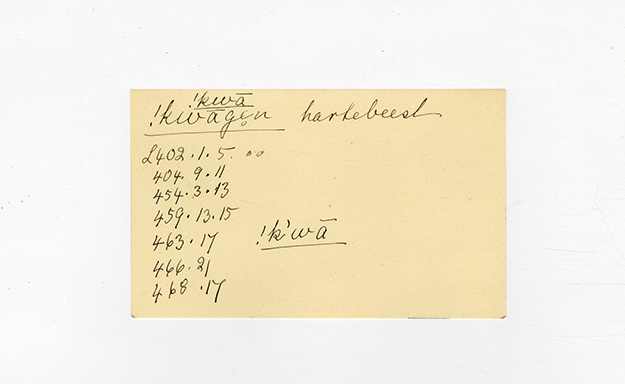 !kwā
!kwāgǝn hartebeest
L402.1.5. oo
404.9.11
454.3.13
459.13.15
463.17 !k'wā
466.21
468.17